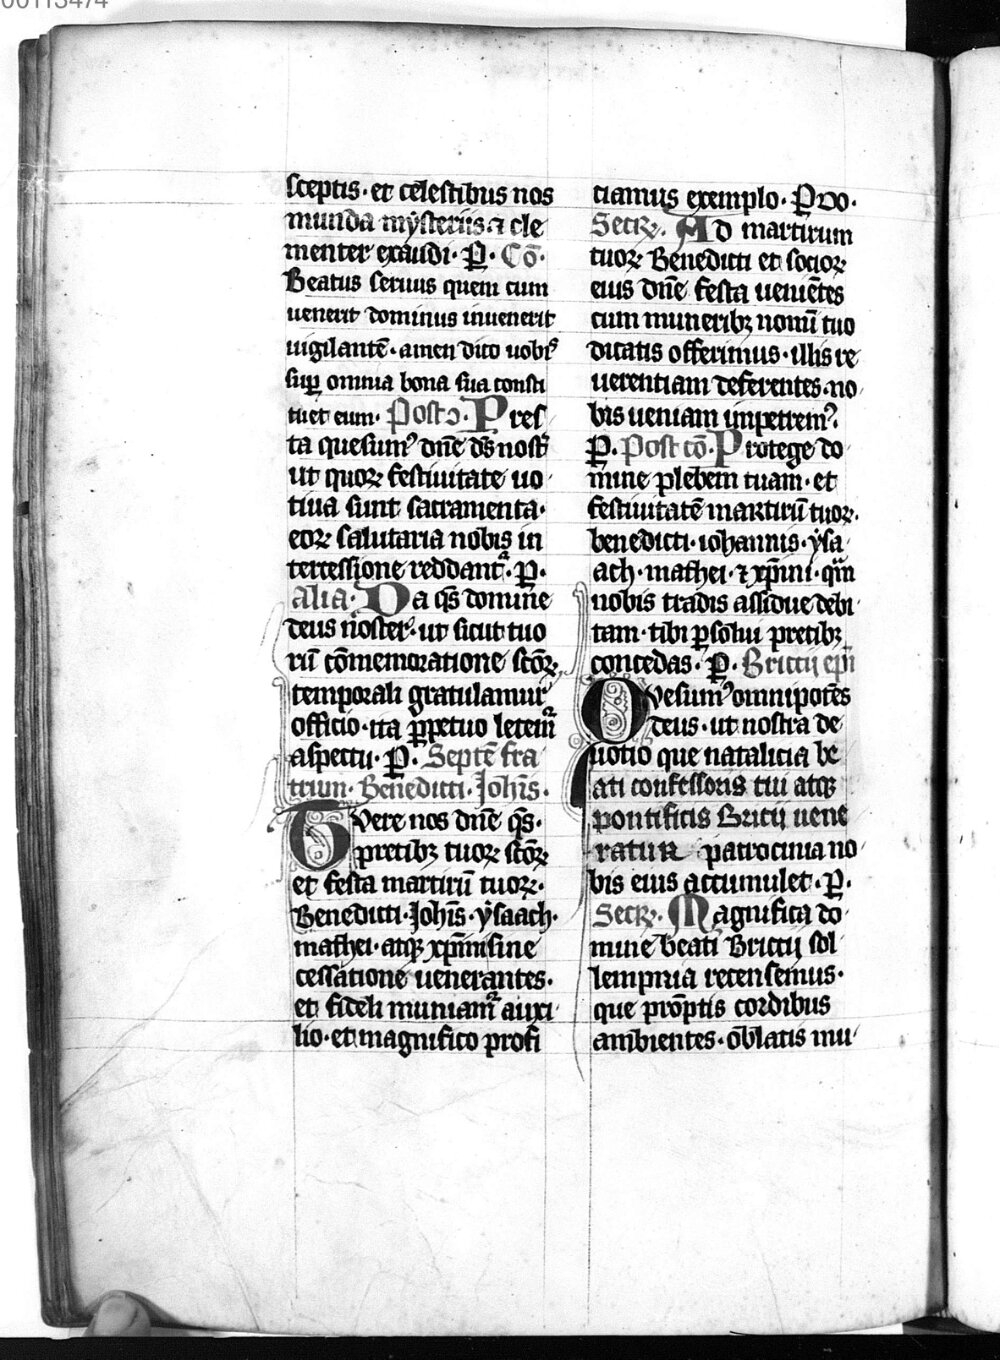 00113474
sceptis· et celestibus nos
munda mẏsteriis ⁊ cle
menter exaudi· P̱· Cō·
Beatus seruus quem cum
uenerit dominus inuenerit
uigilantē· amen dico uobꝭ
suꝑ omnia bona sua consti
tuet eum· Postↄ· Pres
ta quesumꝰ dn̄e ds̄ nosť
ut quoꝝ festiuitate uo
tiua sunt sacramenta·
eoꝝ salutaria nobis in
tercessione reddantᷣ· P̱·
alia· Da qs̄ domine
deus nos̄ter· ut sicut tuo
rū cōmemoratione sc̄oꝝ
temporali gratulamur
officio· ita ꝑpetuo letemᷣ
aspectu· P̱· Septē fra
trum· Benedicti· Joh̄is·
Tuere nos dn̄e qs̄·
pretibꝫ tuoꝝ sc̄oꝝ
et festa martirū tuoꝝ·
Benedicti· Joh̄is· ẏsaach·
mathei· atqꝫ xp̄ini sine
cessatione uenerantes·
et fideli muniamᷣ auxi
lio· et magnifico profi
ciamus exemplo· P̱ DO·
Secꝝ· Ad martirum
tuoꝝ Benedicti et socioꝝ
eius dn̄e festa ueniētes
cum muneribꝫ nomī tuo
dicatis offerimus· illis re
uerentiam deferentes· no
bis ueniam impetremꝰ·
P̱· Post cō· Protege do
mine plebem tuam· et
festiuitatē martirū tuoꝝ·
benedicti· iohannis· ẏsa
ach· mathei· ⁊ xp̄ini· qm̄
nobis tradis assidue debi
tam· tibi ꝑsolui pretibꝫ
concedas· P̱· Brictij ep̄i
Qvesumꝰ omnipotēs
deus· ut nostra de
uotio que natalicia be
ati confessoris tui atqꝫ
pontificis Brictij uene
ratur patrocinia no
bis eius accumulet· P̱·
Secꝝ· Magnifica do
mine beati Brictij sol
lempnia recensemus·
que prōptis cordibus
ambientes· oblatis mu